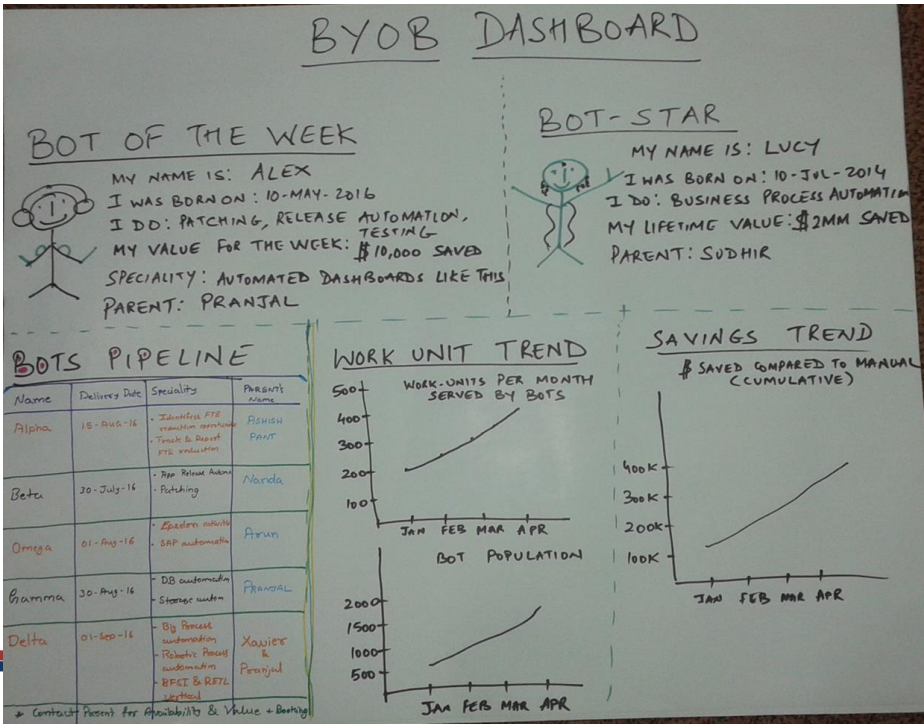 BYOB DASHBOARD
BOT OF THE WEEK
MY NAME IS: ALEX
I WAS BORN ON: 10-MAY-2016
I DO: PATCHING, RELEASE AUTOMATION,
TESTING
MY VALUE FOR THE WEEK: $10,000 SAVED
SPECIALITY: AUTOMATED DASHBOARDS LIKE THIS
PARENT: PRANJAL
BOT-STAR
MY NAME IS: LUCY
I WAS BORN ON: 10-JUL-2014
I DO: BUSINESS PROCESS AUTOMATION
MY LIFETIME VALUE: $2MM SAVED
PARENT: SUDHIR
BOTS PIPELINE
Name Delivery Date Speciality PARENT'S
Name
Alpha 15-AUG-16 - Identifies FTE ASHISH
reduction
- Track & Report PANT
FTE reduction
Beta 30-July-16 - App Release Autom Narida
- Patching
Omega 01-Aug-16 Arun
- SAP automation
Gamma 30-Aug-16 - DB automation PRANJAL
- Storage autom
Delta 01-Sep-16 - Big Process Xavier
automation &
- Robotic Process Pranjal
automation
- BFSI & RETL
vertical
* Contact Parent for Availability & Value + Booking
WORK UNIT TREND
WORK-UNITS PER MONTH
SERVED BY BOTS
500
400
300
200
100
JAN FEB MAR APR
BOT POPULATION
2000
1500
1000
500
JAN FEB MAR APR
SAVINGS TREND
$ SAVED COMPARED TO MANUAL
(CUMULATIVE)
400K
300K
200K
100K
JAN FEB MAR APR